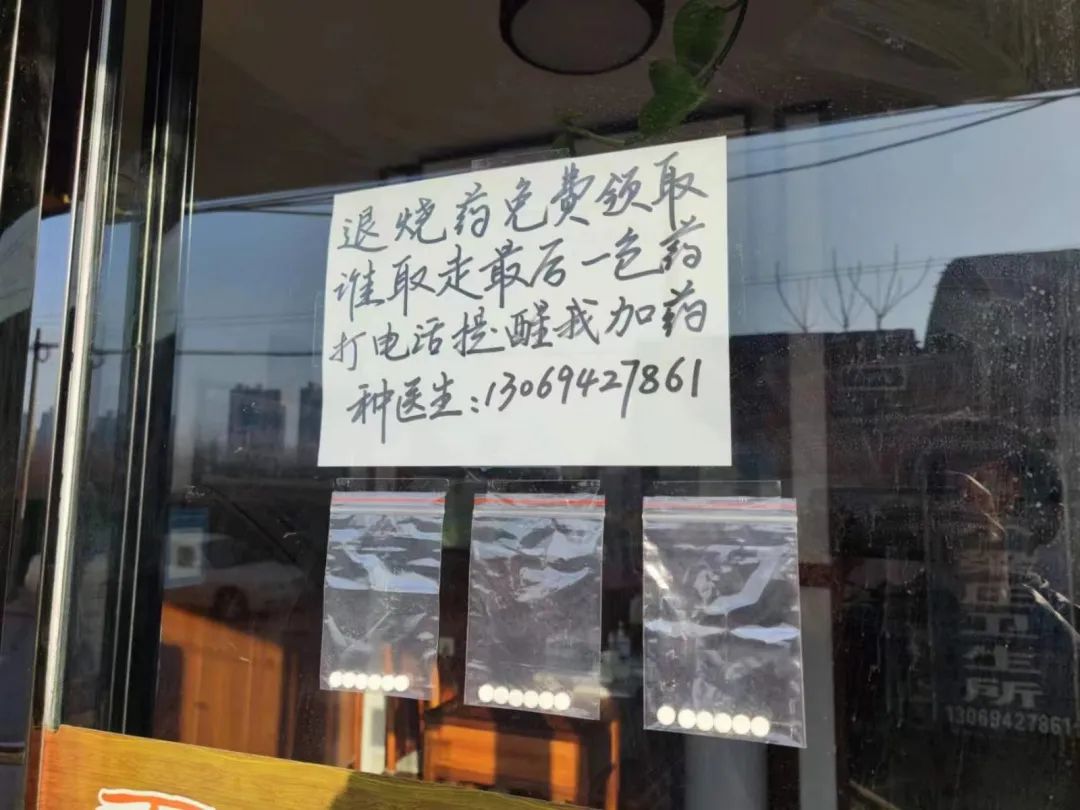 退烧药免费领取
谁取走最后一包药
打电话提醒我加药
种医生:13069427861
生所
13069427861